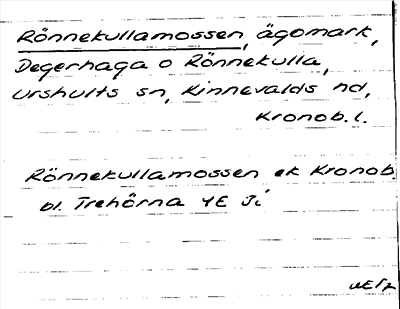 Rönnekullamossen, ägomark,
Degerhaga o Rönnekulla,
Urshults sn, Kinnevalds hd,
Kronob. l.
Rönnekullamossen ek Kronob.
bl. Trehörna 4E Ji